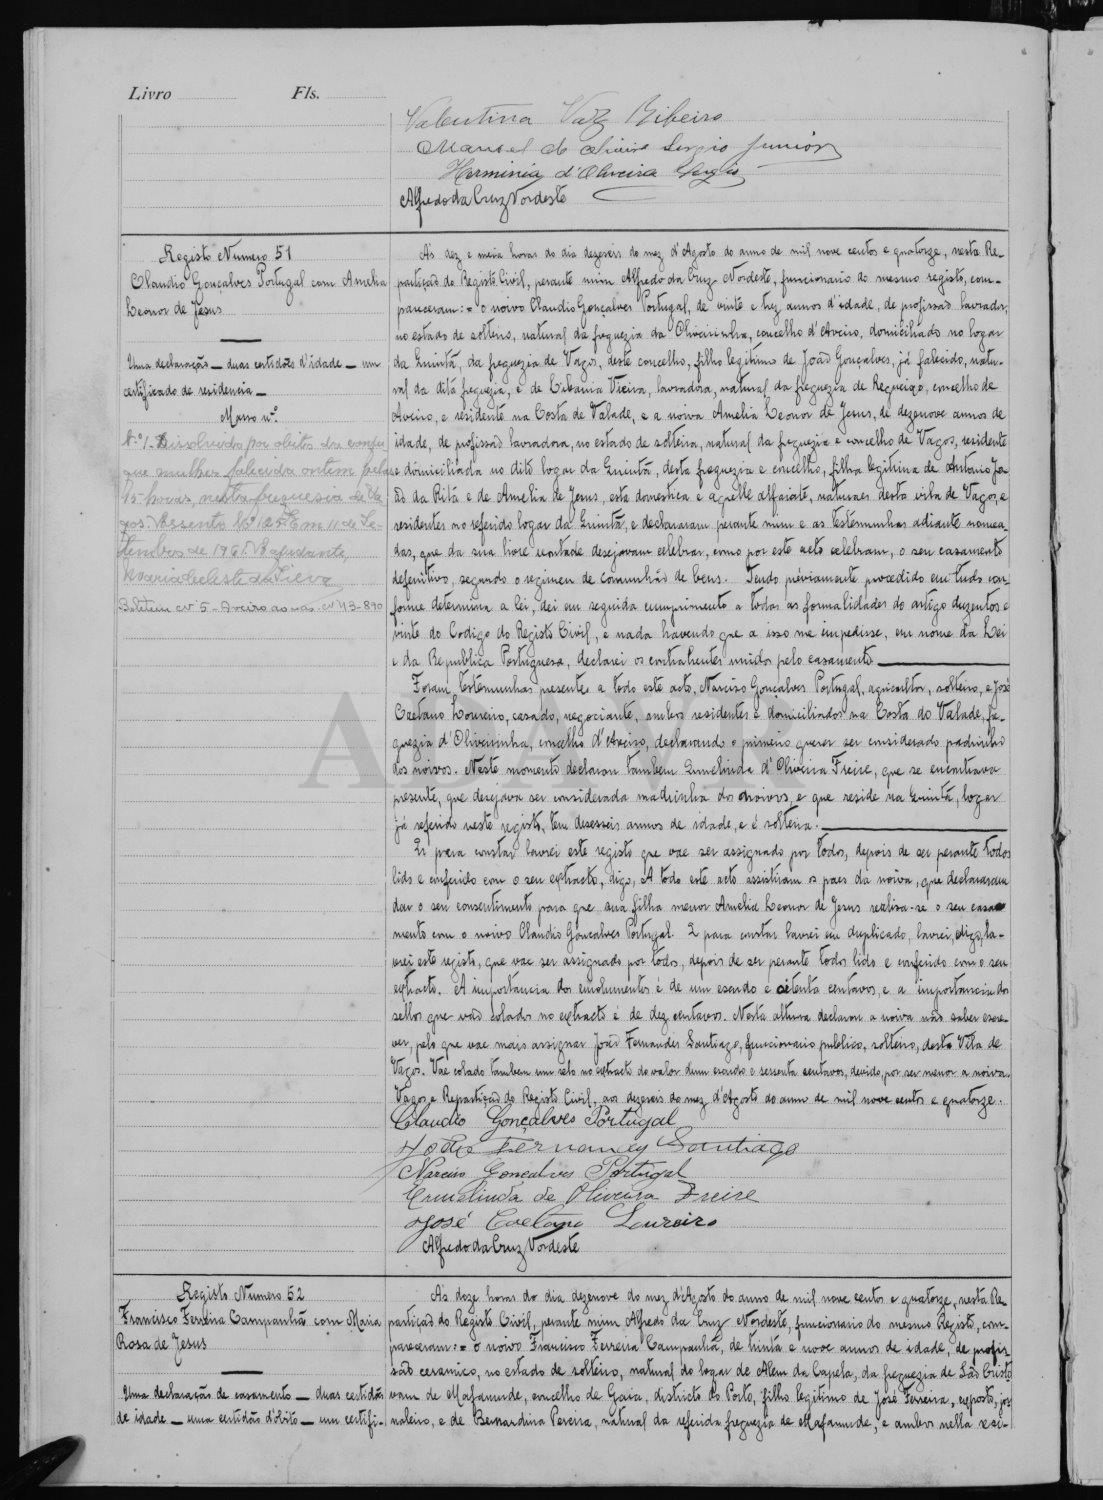 Livro Fls.
Valentina Vaz Ribeiro
Manoel de Oliveira Sergio Junior
Herminia d'Oliveira Sergio
Alfredo da Cruz Nordeste
Registo Numero 51
Claudio Gonçalves Portugal com Amelia
Leonor de Jesus
Uma declaração — duas certidões d'idade — um
certificado de residencia —
Maço n.º
N.º 1 - Dissolvido por obito da conju
gue mulher falecida ontem pelas
15 horas, nesta freguesia de Va
gos. Assento Nº 125. Em 11 de Se-
tembro de 1961. A ajudante,
Maria Celeste da
Boletim nº 5 - Aveiro
Ás dez e meia horas do dia dezeseis do mez d'Agosto do anno de mil nove centos e quatorze, nesta Re-
partição do Registo Civil, perante mim Alfredo da Cruz Nordeste, funcionario do mesmo registo, com-
pareceram: = o noivo Claudio Gonçalves Portugal, de vinte e trez annos d'idade, de profissão lavrador,
no estado de solteiro, natural da freguezia da Oliveirinha, concelho d'Aveiro, domiciliado no logar
da Quintã, da freguezia de Vagos, deste concelho, filho legitimo de João Gonçalves, já falecido, natu-
ral da dita freguezia, e de Libania Vieira, lavradora, natural da freguezia de Requeixo, concelho de
Aveiro, e residente na Costa de Valade, e a noiva Amelia Leonor de Jesus, de dezenove annos de
idade, de profissão lavradora, no estado de solteira, natural da freguezia e concelho de Vagos, residente
e domiciliada no dito logar da Quintã, desta freguezia e concelho, filha legitima de Antonio Jo-
ão da Rita e de Amelia de Jesus, esta domestica e aquelle alfaiate, naturaes desta vila de Vagos, e
residentes no referido logar da Quintã, e declararam perante mim e as testemunhas adiante nomea-
das, que da sua livre vontade desejavam celebrar, como por este acto celebram, o seu casamento
definitivo, segundo o regimen de comunhão de bens. Tendo préviamente procedido em tudo con-
forme determina a lei, dei em seguida cumprimento a todas as formalidades do artigo duzentos e
vinte do Codigo do Registo Civil, e nada havendo que a isso me impedisse, em nome da Lei
e da Republica Portuguesa, declarei os contrahentes unidos pelo casamento
Foram testemunhas presentes a todo este acto, Narciso Gonçalves Portugal, agricultor, solteiro, e José
Caetano Loureiro, casado, negociante, ambos residentes e domiciliados na Costa do Valade, fre-
guezia d'Oliveirinha, concelho d'Aveiro, declarando o primeiro querer ser considerado padrinho
dos noivos. Neste momento declarou tambem Ermelinda d'Oliveira Freire, que se encontrava
presente, que desejava ser considerada madrinha dos noivos, e que reside na Quintã, logar
já referido neste registo, tem deseseis annos de idade, e é solteira.
E para constar lavrei este registo que vae ser assignado por todos, depois de ser perante todos
lido e conferido com o seu extracto, digo, A todo este acto assistiram os paes da noiva, que declararam
dar o seu consentimento para que sua filha menor Amelia Leonor de Jesus realisa-se o seu casa
mento com o noivo Claudio Gonçalves Portugal. E para constar lavrei em duplicado, lavrei, digo, la-
vrei este registo, que vae ser assignado por todos, depois de ser perante todos lido e conferido com o seu
extracto. A importancia dos emolumentos é de um escudo e setenta centavos, e a importancia dos
sellos que vão colados no extracto é de dez centavos. Nesta altura declarou a noiva não saber escre-
ver, pelo que vae mais assignar João Fernandes Santiago, funccionario publico, solteiro, desta Vila de
Vagos. Vae colado tambem um selo no extracto do valor dum escudo e sessenta centavos, devido, por ser menor a noiva.
Vagos e Repartição do Registo Civil, aos dezeseis do mez d'Agosto do anno de mil nove centos e quatorze.
Claudio Gonçalves Portugal
João Fernandes Santiago
Narciso Gonçalves Portugal
Ermelinda de Oliveira Freire
José Caetano Loureiro
Alfredo da Cruz Nordeste
Registo Numero 52
Francisco Ferreira Campanhã com Maria
Rosa de Jesus
Uma declaração de casamento — duas certidões
de idade — uma certidão d'óbito — um certifi-
Ás doze horas do dia dezenove do mez d'Agosto do anno de mil nove centos e quatorze, nesta Re-
partição do Registo Civil, perante mim Alfredo da Cruz Nordeste, funcionario do mesmo Registo, com-
pareceram: = o noivo Francisco Ferreira Campanhã, de trinta e nove annos de idade, de profis-
são ceramico, no estado de solteiro, natural do logar de Alem da Capela, da freguezia de São Cristo
vam de Mafamude, concelho de Gaia, districto do Porto, filho legitimo de José Ferreira, exposto, jor
naleiro, e de Bernardina Pereira, natural da referida freguezia de Mafamude, e ambos nella resi-
ADAVR